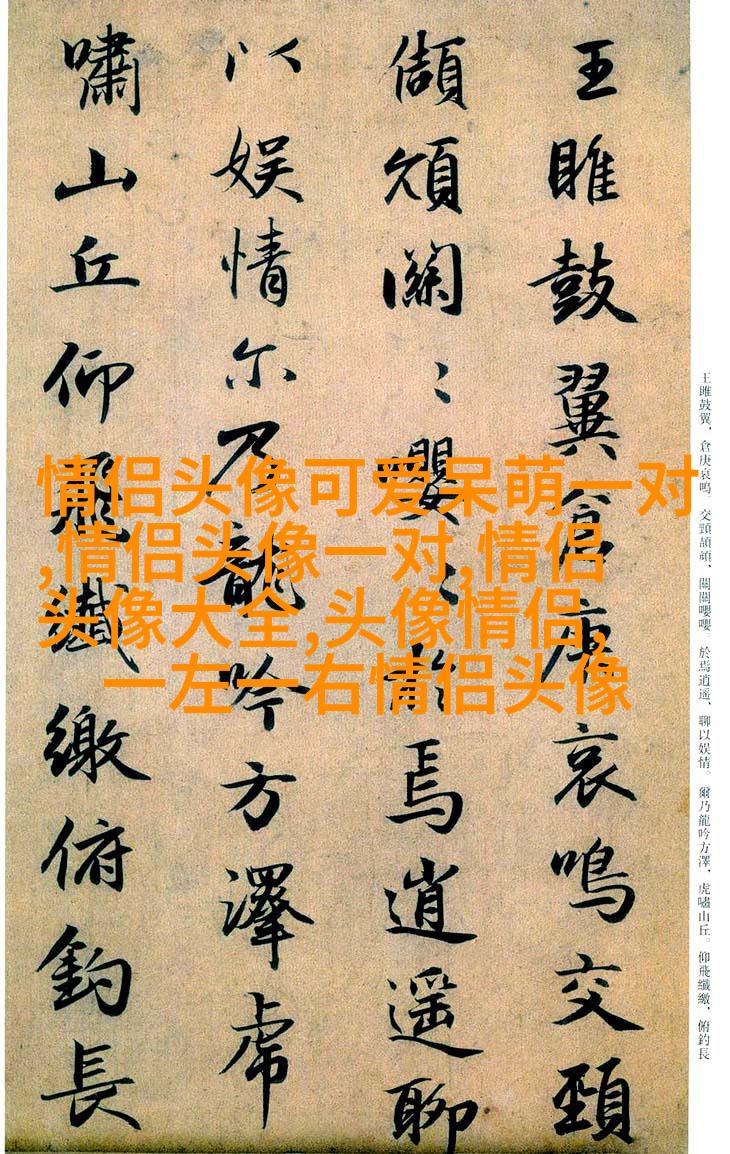 王雎鼓翼、倉庚哀鳴。交頸頡頏、關關嚶嚶。於焉逍遥、聊以娱情。爾乃龍吟方澤、虎嘯山丘。仰飛纖繳、俯釣長
王雎鼓翼倉庚哀鳴交頸
頡頏關〻嚶〻於焉逍遥聊
以娱情尔乃龍吟方澤虎
嘯山丘仰飛纖繳俯釣長
情侣头像可爱呆萌一对
,情侣头像一对,情侣
头像大全,头像情侣,
一左一右情侣头像